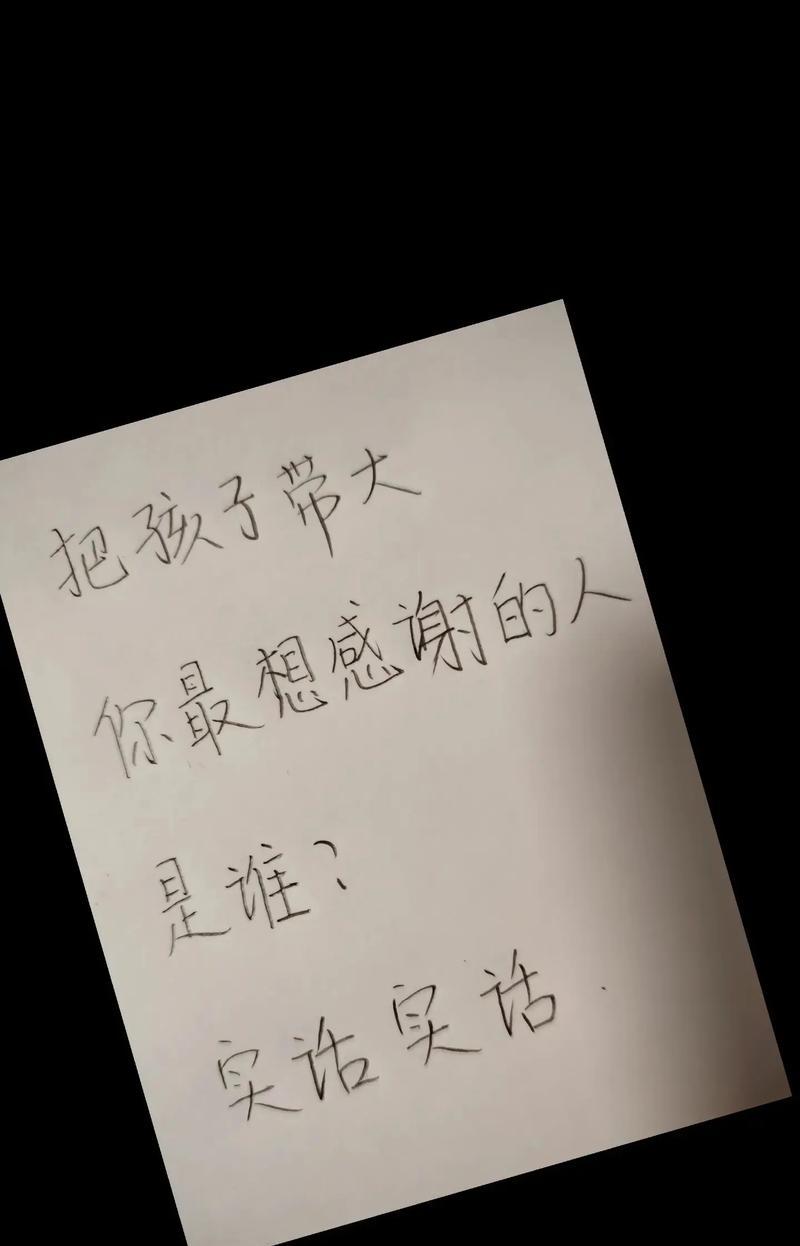 把孩子带大
你最想感谢的人
是谁?
实话实话.